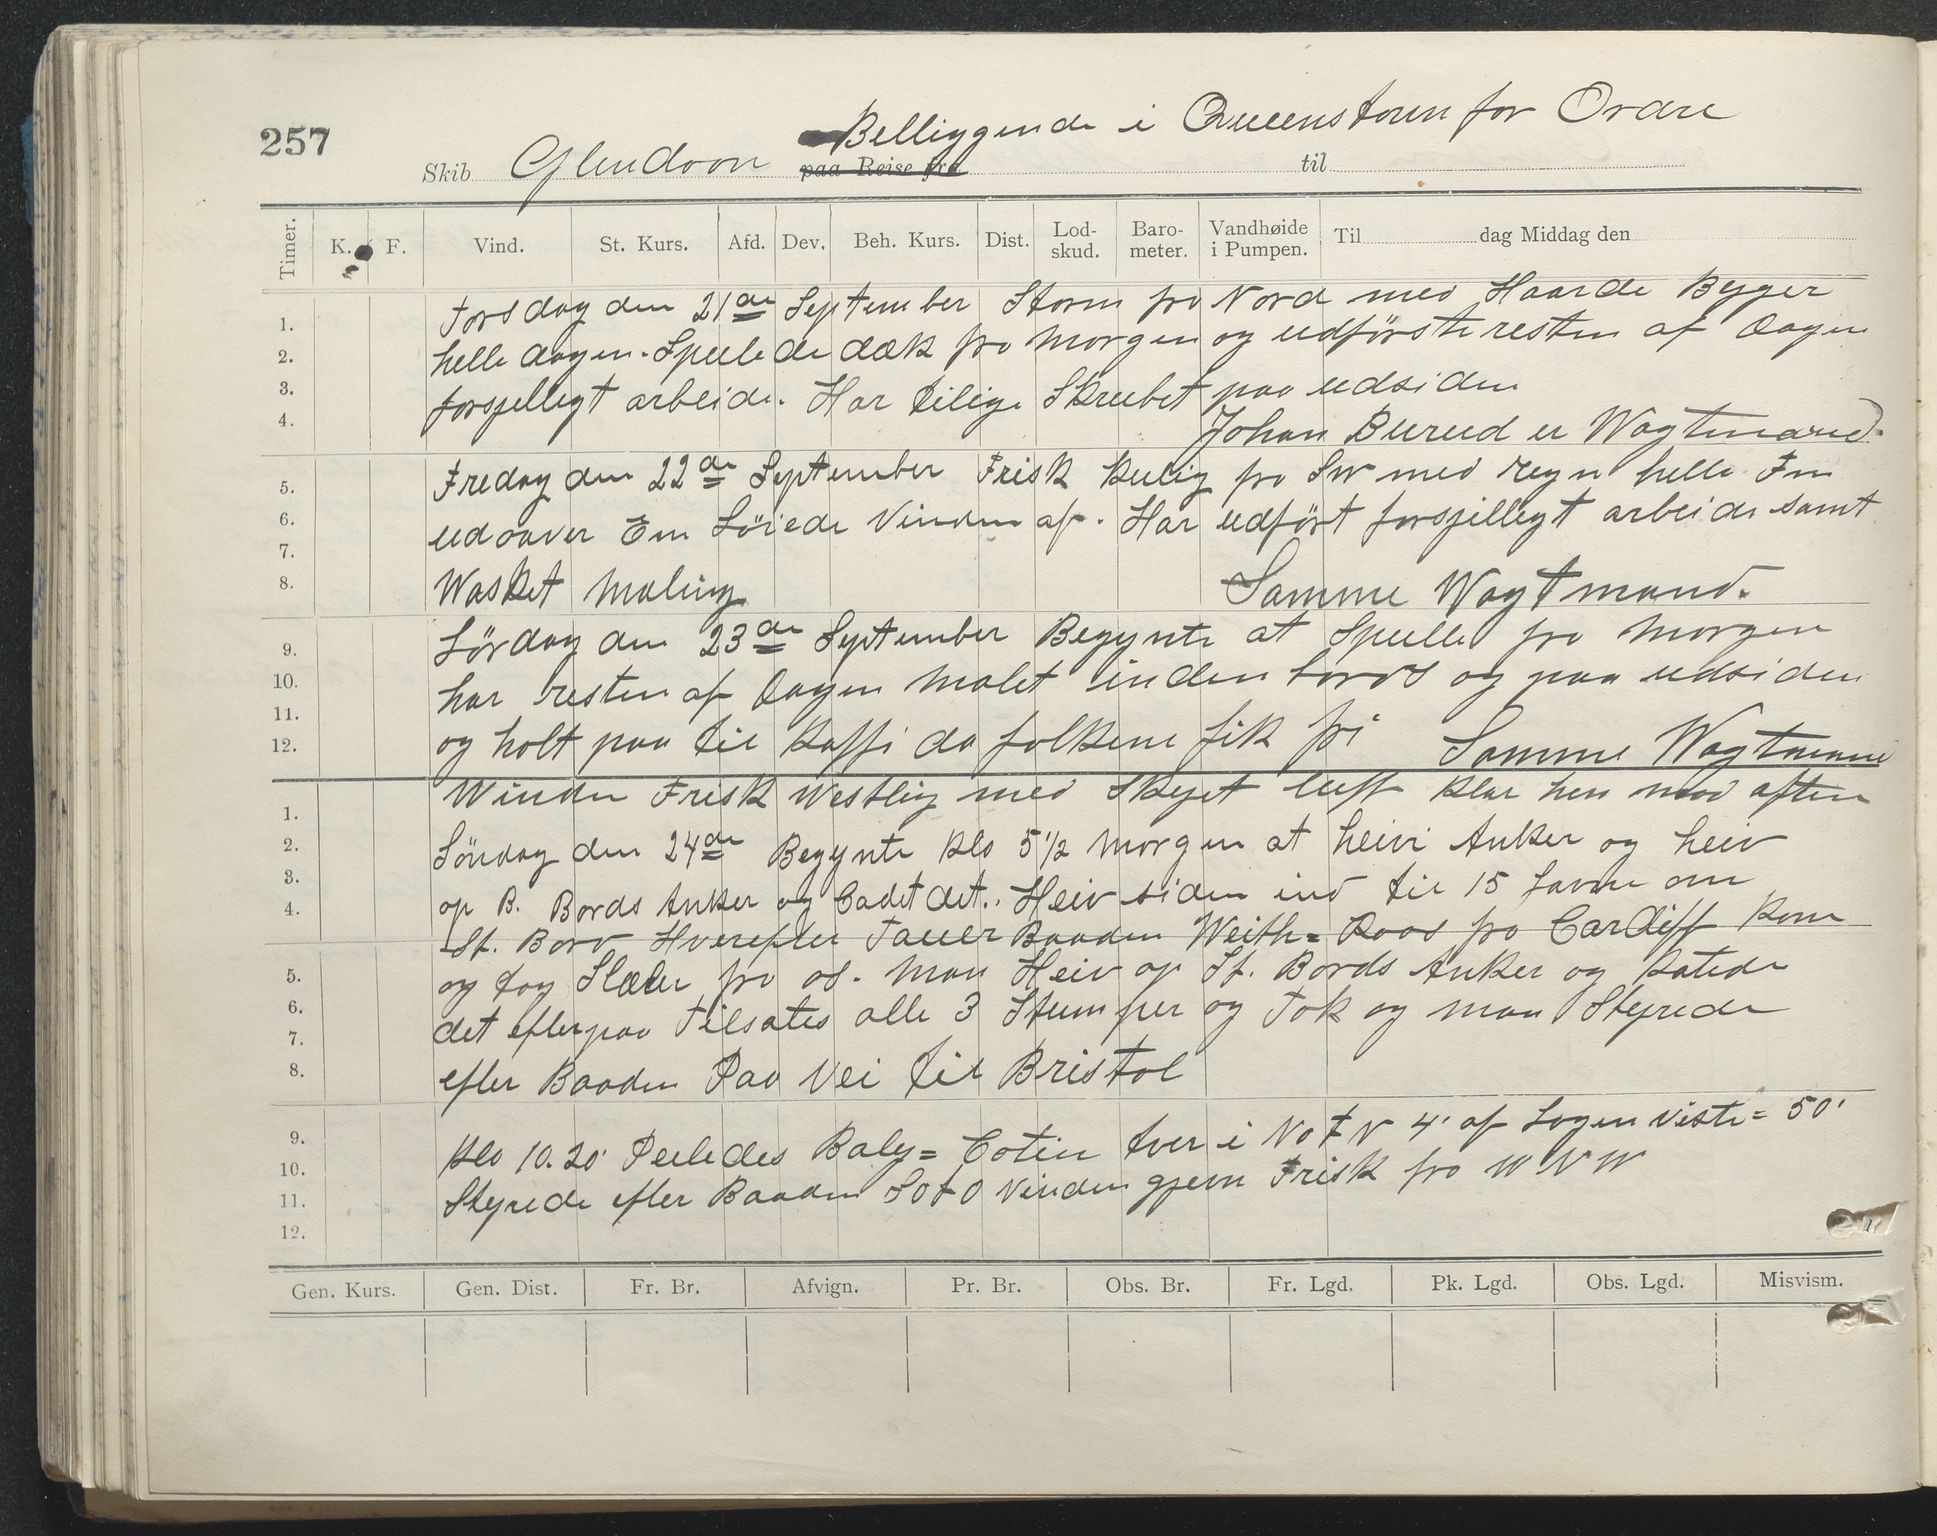 257
Belliggende i Queenstoun for Ordre
Skib Glendoon paa Reise fra til
Timer. K. F. Vind. St. Kurs. Afd. Dev. Beh. Kurs. Dist. Lod-skud. Baro-meter. Vandhøide i Pumpen. Til dag Middag den
1. Torsdag den 21de September Storm fra Nord med Haarde Byger
2. helle dagen. Spulede dæk fra morgen og udførste resten af Dagen
3. forsjelligt arbeide. Har tilige Skrubet paa udsiden
4. Johan Burud er Wagtmand.
5. Fredag den 22de September Frisk kulig fra SW med regn helle Fm
6. udoaver Em Löiede Vinden af. Har udført forsjelligt arbeide samt
7.
8. Wasket maling Samme Wagtmand.
9. Lördag den 23de September Begynte at Spulle fra morgen
10. har resten af Dagen Malet inden bords og paa udsiden
11.
12. og holt paa til Kaffi da folkene fik fri Samme Wagtmand
1. Winden Frisk Westlig med Skyet luft klar hen mod aften
2. Söndag den 24de Begynte klo 5 1/2 morgen at heive Anker og heiv
3. op B. Bords Anker og Cadet det. Heiv siden ind til 15 favne om
4. St. Bord Hverefter Tauer Baaden Weith= Roos fra Cardiff kom
5. og tog Slæber fra os. man Heiv op St. Bords Anker og katede
6. det efterpaa Tilsates alle 3 Stumper og Fok og man Styrede
7.
8. efter Baaden Paa Vei til Bristol
9. Klo 10.20 Peiledes Baly= Cotin tver i NotN 4' af Logen viste = 50'
10.
11. Styrede efter Baaden SOtO Vinden gjevn Frisk fra WNW
12.
Gen. Kurs. Gen. Dist. Fr. Br. Afvign. Pr. Br. Obs. Br. Fr. Lgd. Pk. Lgd. Obs. Lgd. Misvism.